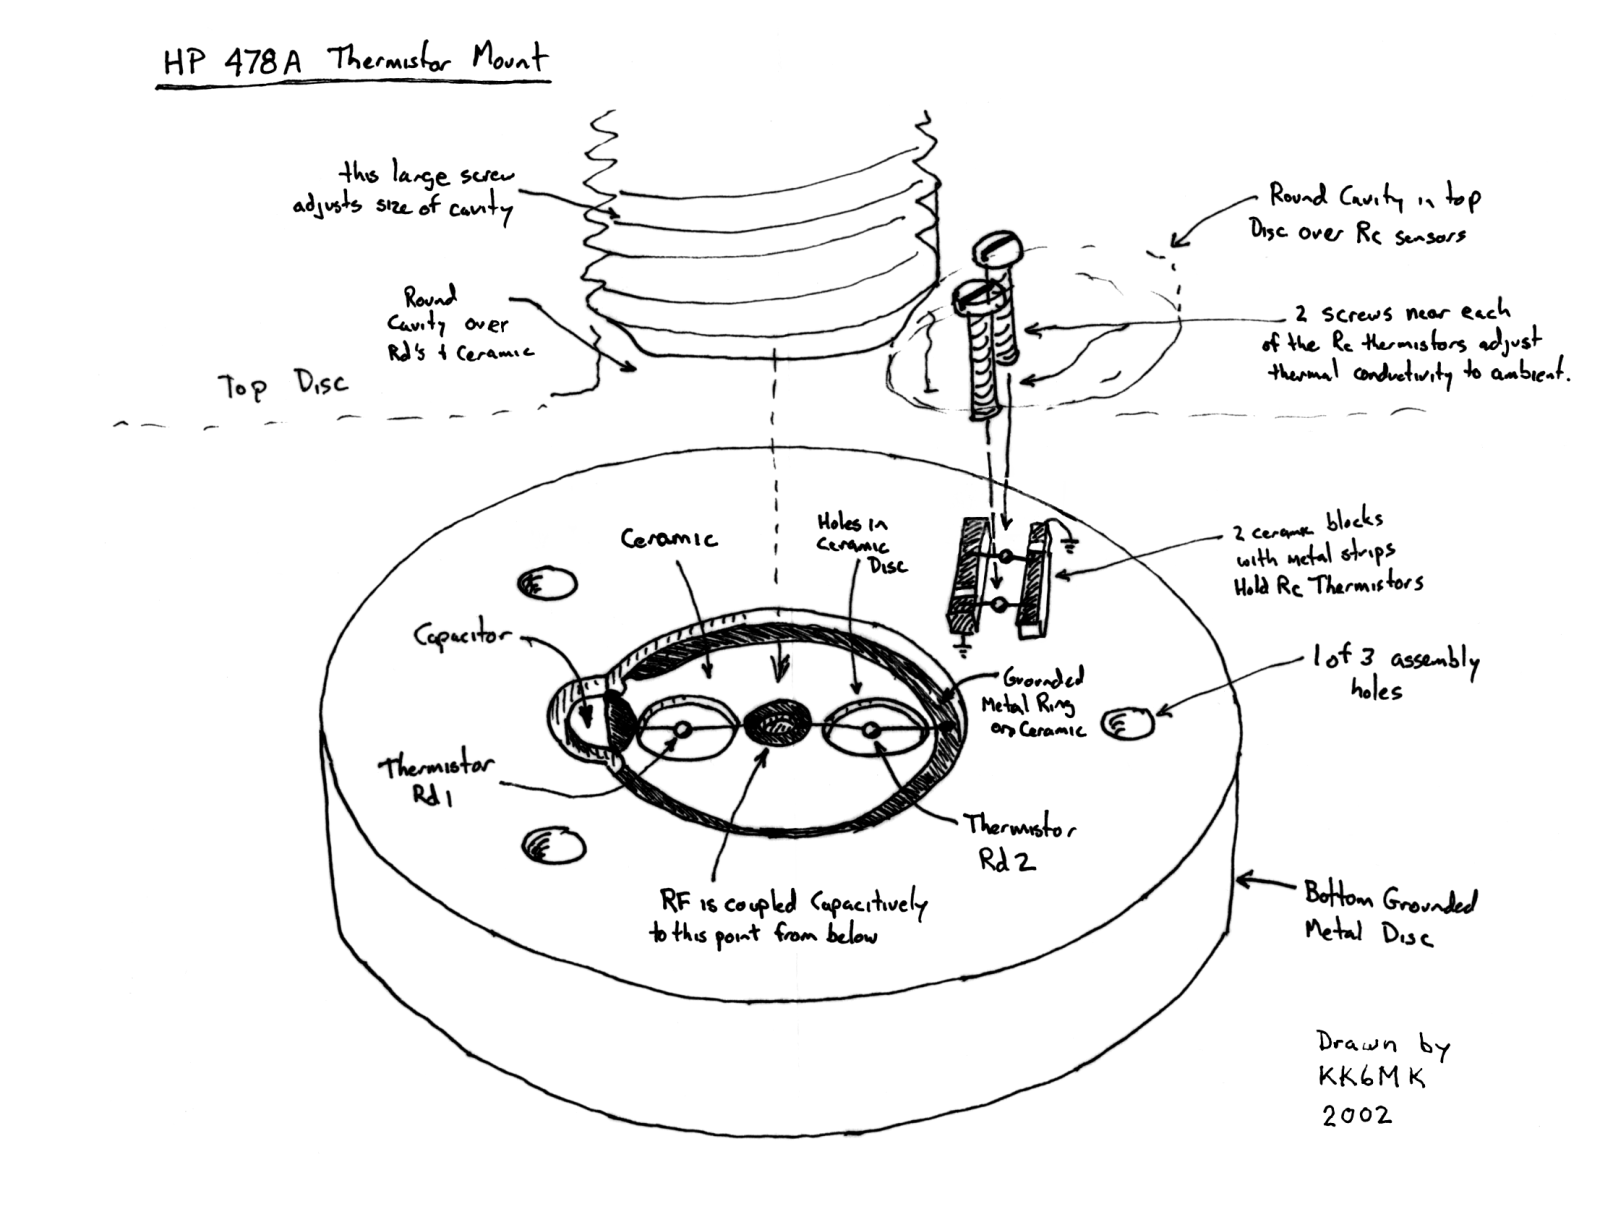 HP 478A Thermistor Mount
this large screw
adjusts size of cavity
Round Cavity in top
Disc over Rc sensors
Round
Cavity over
Rd's + Ceramic
2 screws near each
of the Rc thermistors adjust
thermal conductivity to ambient.
Top Disc
Ceramic
Holes in
Ceramic
Disc
2 ceramic blocks
with metal strips
Hold Rc Thermistors
Capacitor
1 of 3 assembly
holes
Grounded
Metal Ring
on Ceramic
Thermistor
Rd1
Thermistor
Rd2
RF is coupled Capacitively
to this point from below
Bottom Grounded
Metal Disc
Drawn by
KK6MK
2002